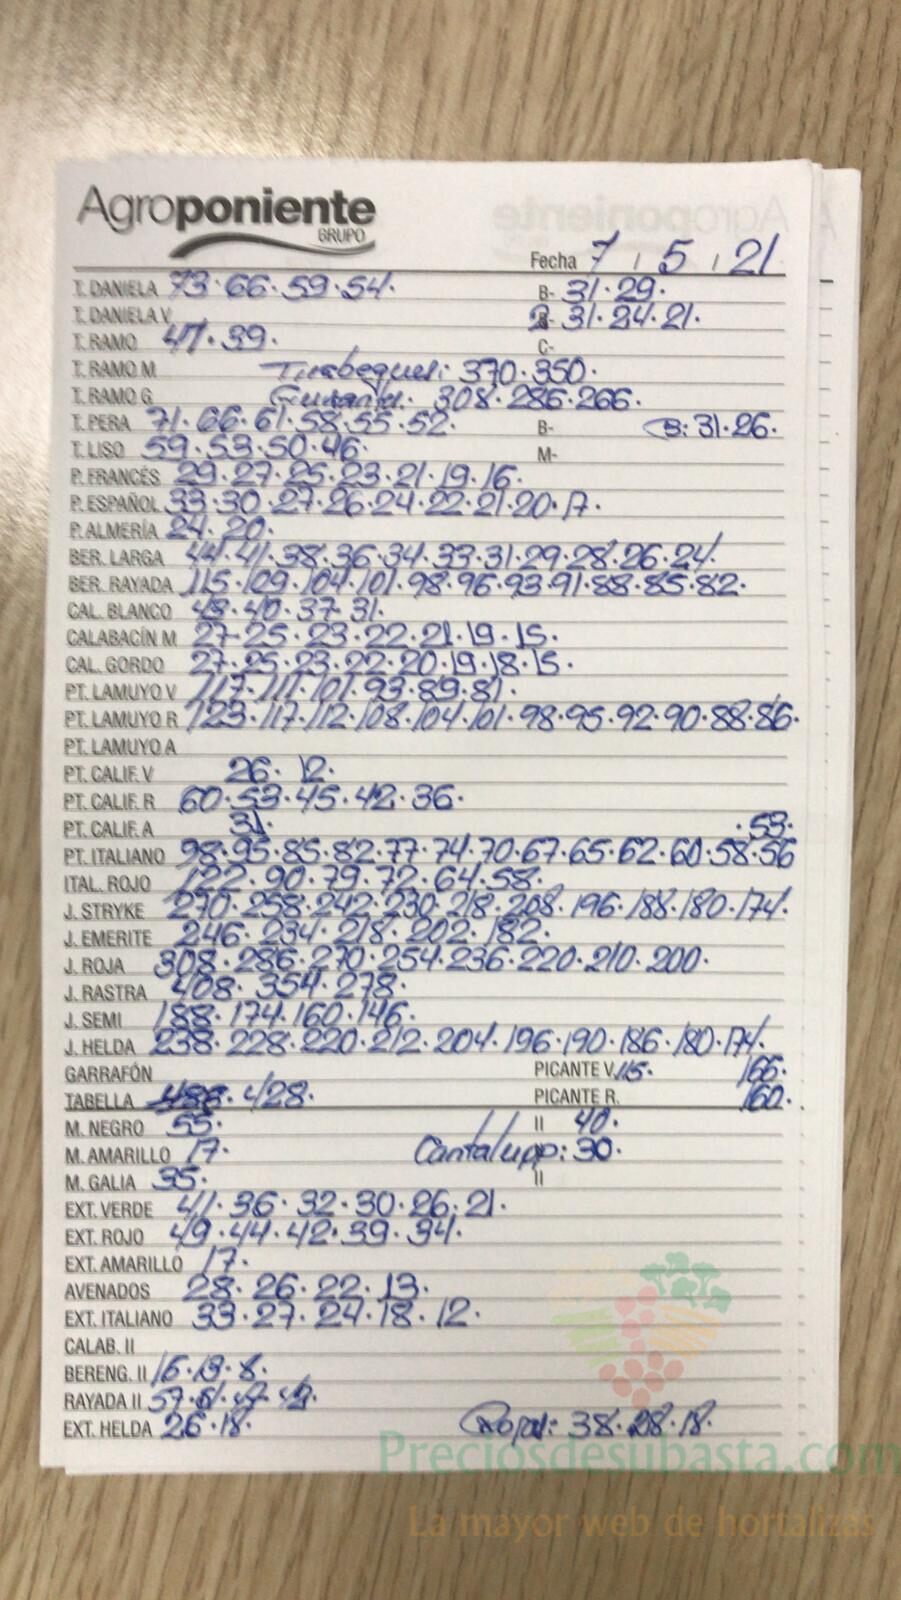 Agroponiente
GRUPO
Fecha 7 / 5 / 21
T. DANELA 73·66·59·54· B- 31·29·
T. DANIELA V 31·24·21·
T. RAMO 47·39· C-
T. RAMO M Tirabeques: 370·350·
T. RAMO G Guisante: 308·286·266·
T. PERA 71·66·61·58·55·52· B- B: 31·26·
T. LISO 59·53·50·46· M-
P. FRANCÉS 29·27·25·23·21·19·16·
P. ESPAÑOL 33·30·27·26·24·22·21·20·17·
P. ALMERÍA 24·20·
BER. LARGA 44·41·38·36·34·33·31·29·28·26·24·
BER. RAYADA 115·109·104·101·98·96·93·91·88·85·82·
CAL. BLANCO 48·40·37·31·
CALABACÍN M 27·25·23·22·21·19·15·
CAL. GORDO 27·25·23·22·20·19·18·15·
PT. LAMUYO V 117·111·101·93·89·81·
PT. LAMUYO R 123·117·112·108·104·101·98·95·92·90·88·86·
PT. LAMUYO A
PT. CALIF. V 26·12·
PT. CALIF. R 60·53·45·42·36·
PT. CALIF. A 31· ·53·
PT. ITALIANO 98·95·85·82·77·74·70·67·65·62·60·58·56
ITAL. ROJO 122·90·79·72·64·58·
J. STRYKE 270·258·242·230·218·208·196·188·180·174·
J. EMERITE 246·234·218·202·182·
J. ROJA 308·286·270·254·236·220·210·200·
J. RASTRA 408·354·278·
J. SEMI 188·174·160·146·
J. HELDA 238·228·220·212·204·196·190·186·180·174·
GARRAFÓN PICANTE V. 115· 166·
TABELLA 428· PICANTE R. 160·
M. NEGRO 55· II 40·
M. AMARILLO 17· Cantalupp: 30·
M. GALIA 35· II
EXT. VERDE 41·36·32·30·26·21·
EXT. ROJO 49·44·42·39·34·
EXT. AMARILLO 17·
AVENADOS 28·26·22·13·
EXT. ITALIANO 33·27·24·18·12·
CALAB. II
BERENG. II 16·13·8·
RAYADA II 57·
EXT. HELDA 26·18· Rojal: 38·28·18·
Preciosdesubasta.com
La mayor web de hortalizas